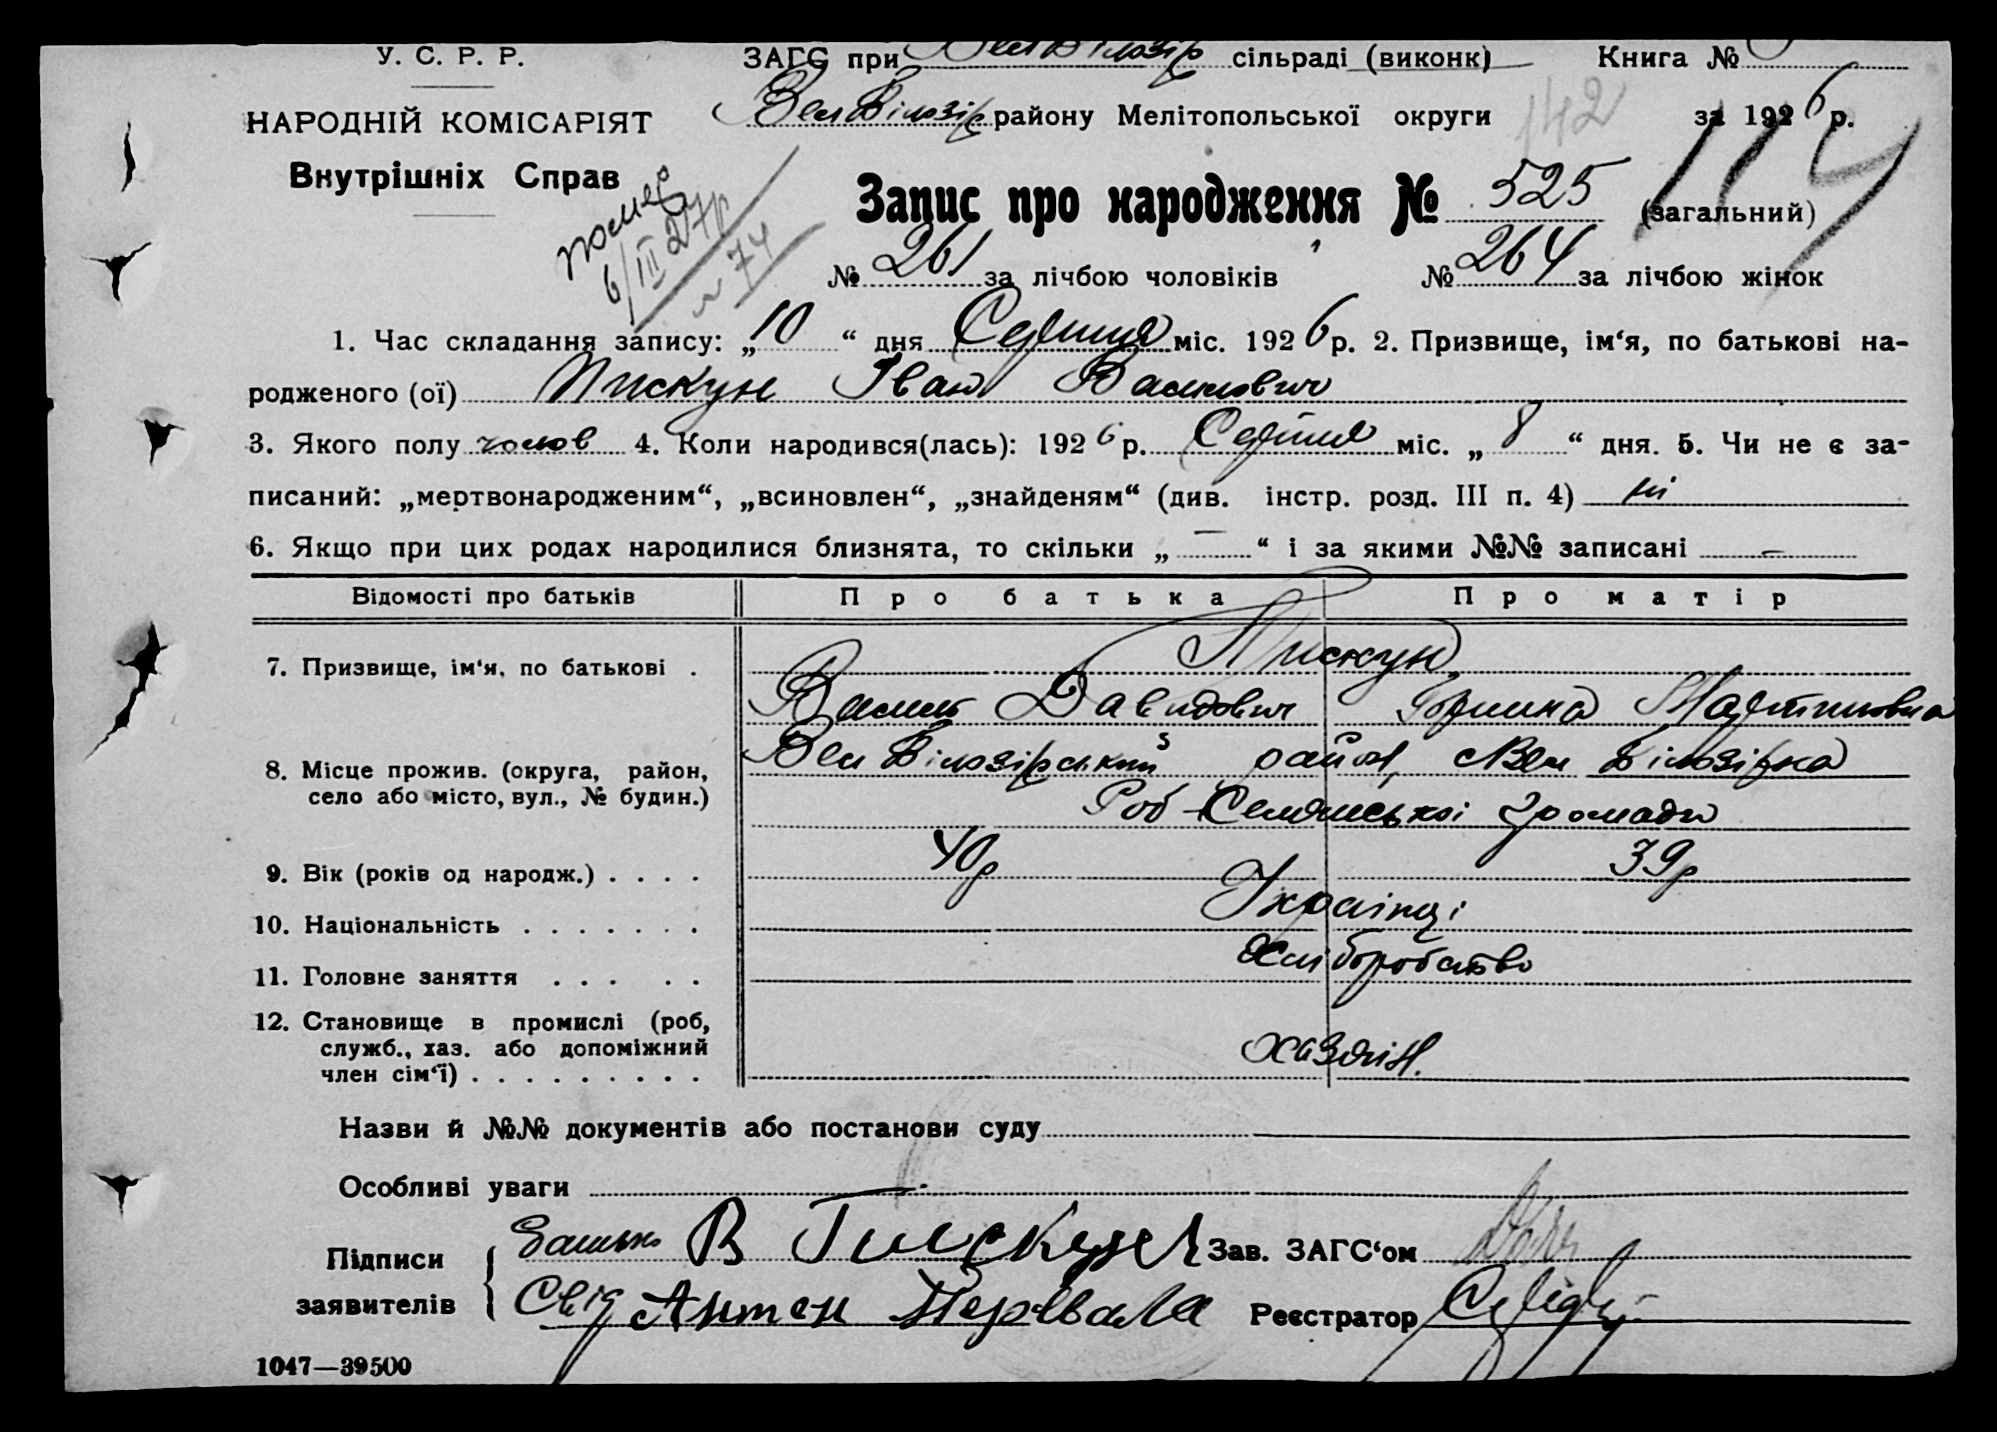 У. С. Р. Р. ЗАГС при Вел Білозір сільраді (виконк) Книга №
НАРОДНІЙ КОМІСАРІЯТ Вел Білозір району Мелітопольської округи за 1926 р.
142
Внутрішніх Справ
помер
6/III 27р
№ 74
Запис про народження № 525 (загальний)
№ 261 за лічбою чоловіків № 264 за лічбою жінок
1. Час складання запису: „10“ дня Серпня міс. 1926 р. 2. Призвище, ім‘я, по батькові на-
родженого (ої) Пискун Іван Василович
3. Якого полу чолов 4. Коли народився(лась): 1926 р. Серпня міс. „8“ дня. 5. Чи не є за-
писаний: „мертвонародженим“, „всиновлен“, „знайденям“ (див. інстр. розд. III п. 4) ні
6. Якщо при цих родах народилися близнята, то скільки „—“ і за якими №№ записані —
Відомості про батьків Про батька Про матір
7. Призвище, ім‘я, по батькові . Пискун
Василь Давидович Мартиновна
8. Місце прожив. (округа, район, Вел Білозірський район, с Вел Білозірка
село або місто, вул., № будин.) Роб-Селянської громади
9. Вік (років од народж.) . . . . 40р 39р
10. Національність . . . . . . . Українці
11. Головне заняття . . . . . Хліборобство
12. Становище в промислі (роб,
служб., хаз. або допоміжний хазяїн.
член сім‘ї) . . . . . . . . .
Назви й №№ документів або постанови суду
Особливі уваги
Підписи Батько В Пискун Зав. ЗАГС‘ом
заявителів Свід Антон Реєстратор
1047—39500